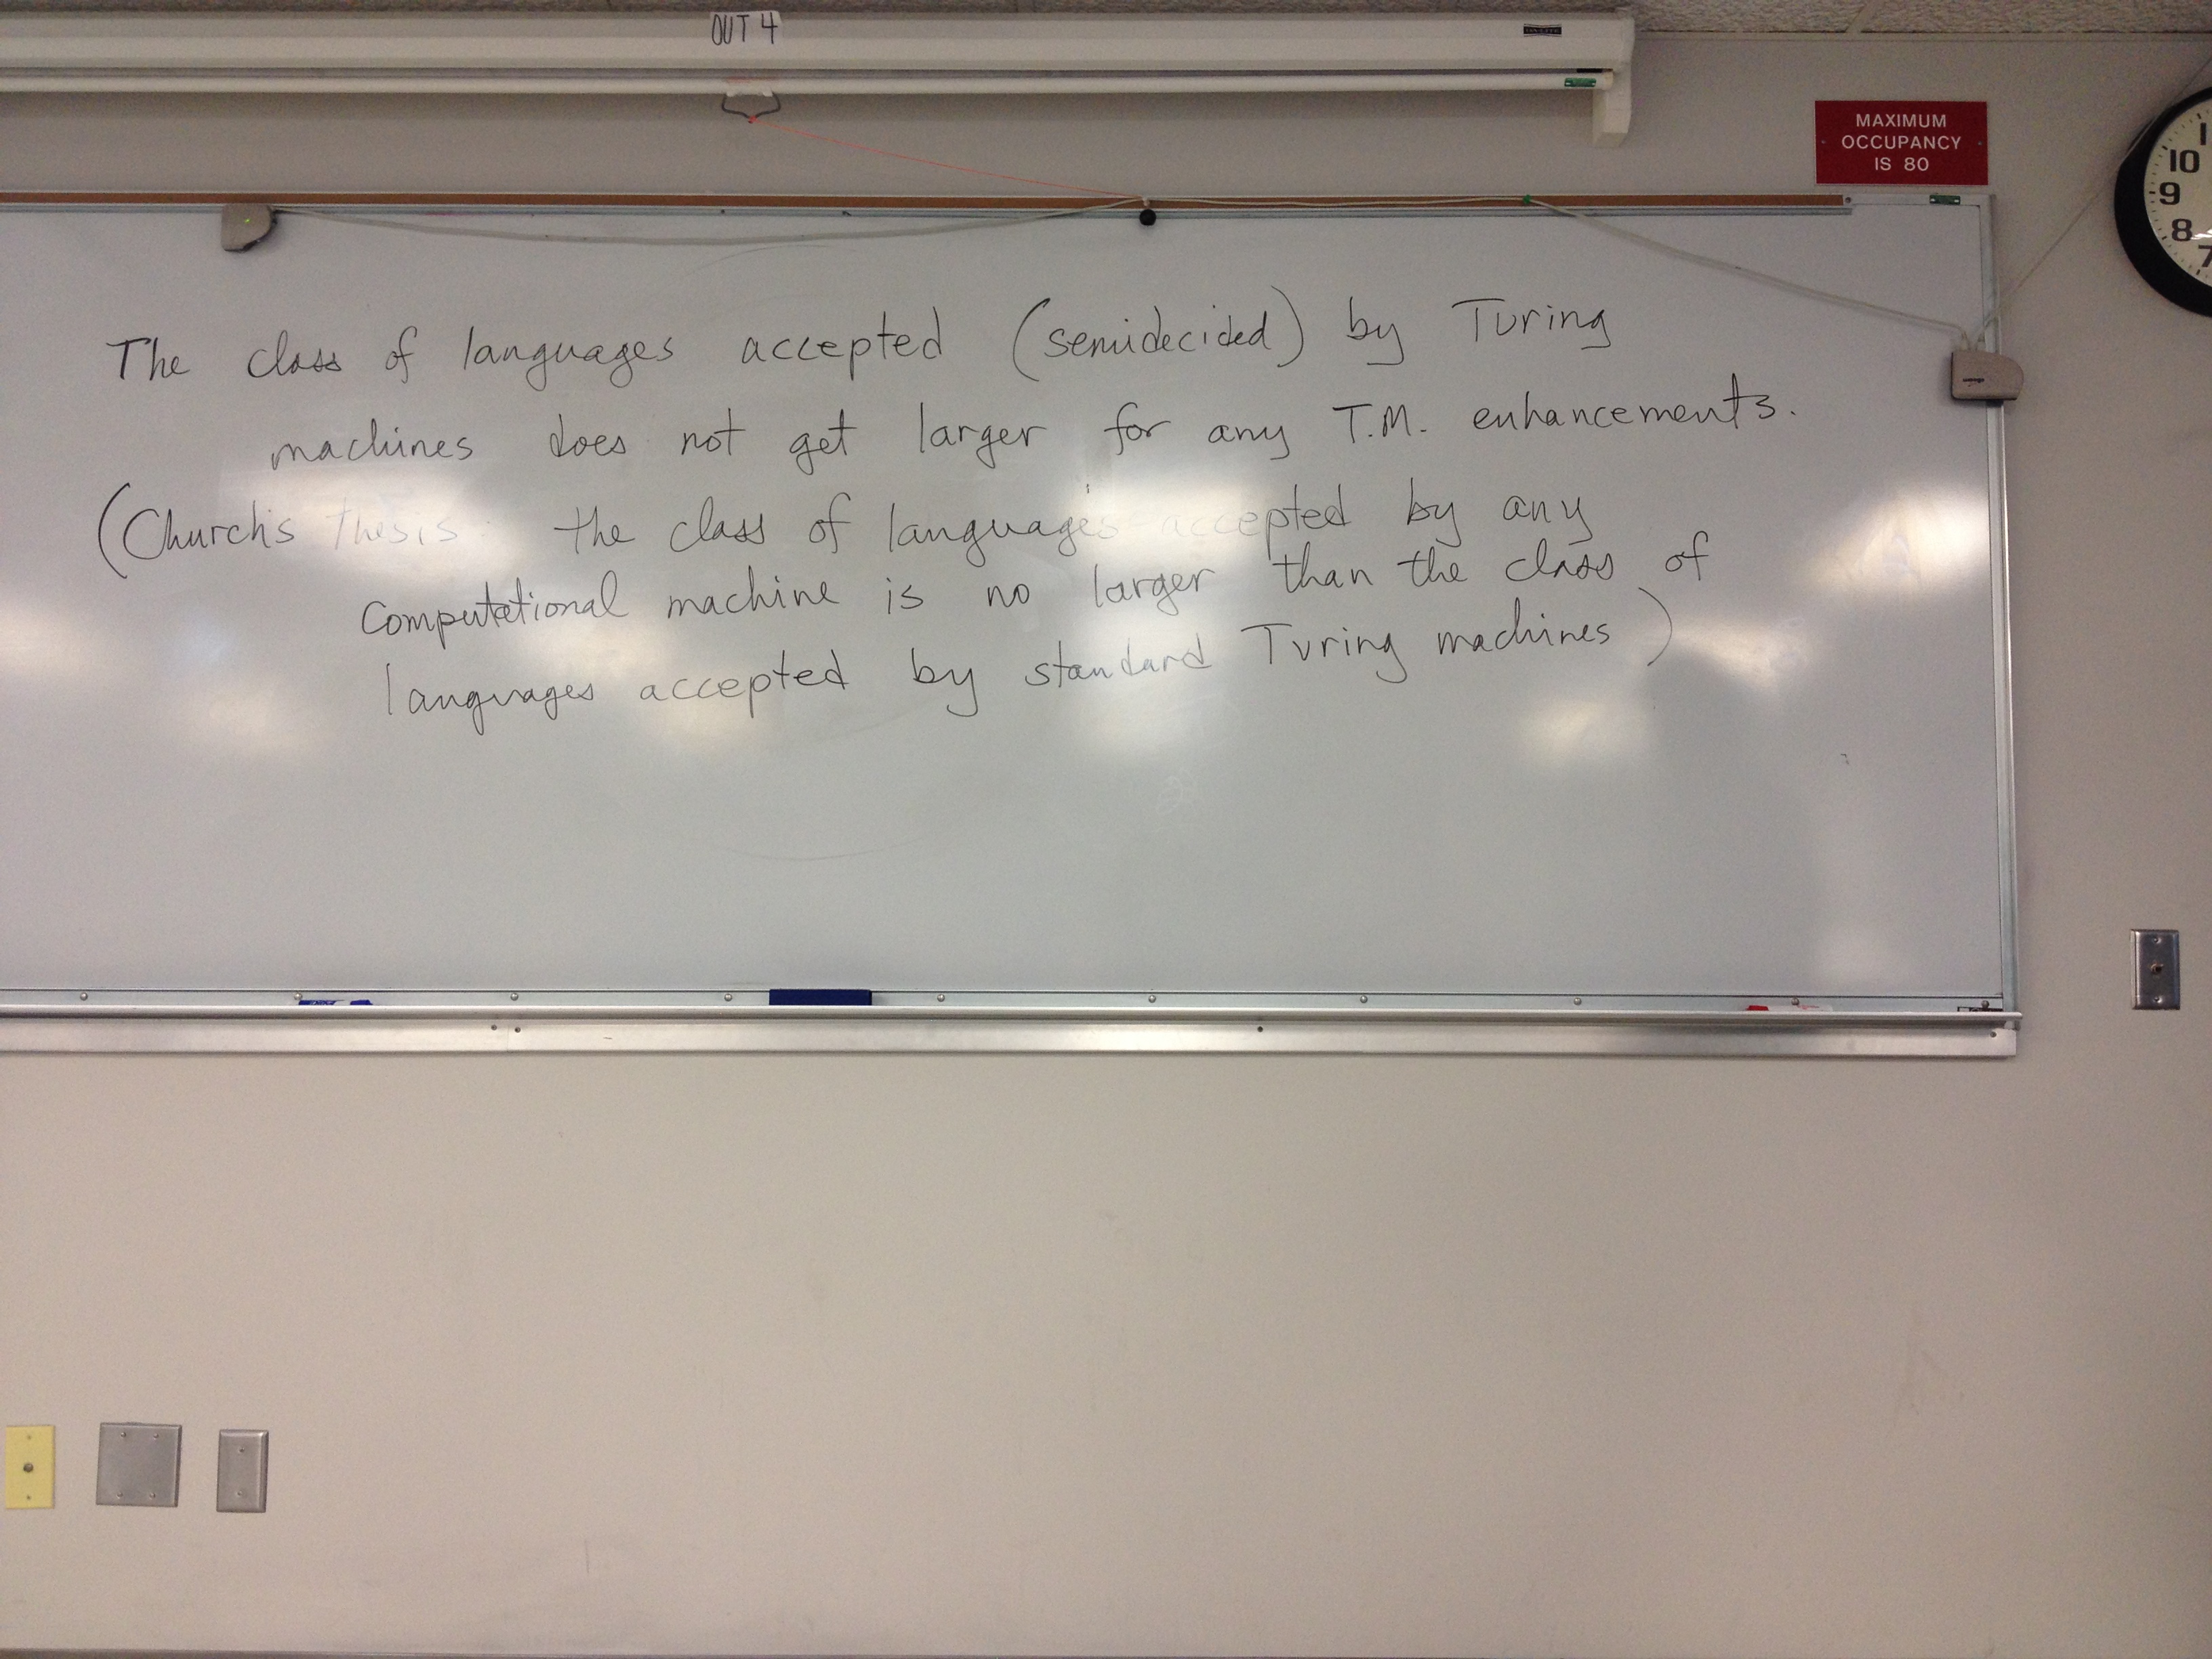 OUT 4
MAXIMUM
OCCUPANCY
IS 80
1
10
9
8
7
The class of languages accepted (semidecided) by Turing
machines does not get larger for any T.M. enhancements.
(Church's thesis: the class of languages accepted by any
computational machine is no larger than the class of
languages accepted by standard Turing machines)